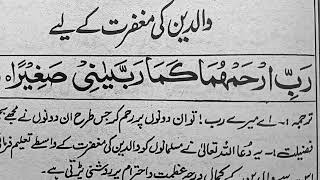 والدین کی مغفرت کے لیے
رَبِّ ارْحَمْهُمَا كَمَا رَبَّيٰنِيْ صَغِيْرًا
ترجمہ:۔ اے میرے رب! تو ان دونوں پر رحم کر جس طرح ان دونوں نے مجھے
فضیلت:۔ یہ دُعا اللہ تعالیٰ نے مسلمانوں کو والدین کی مغفرت کے واسطے تعلیم
کمال درجہ عظمت و احترام پر روشنی پڑتی ہے۔